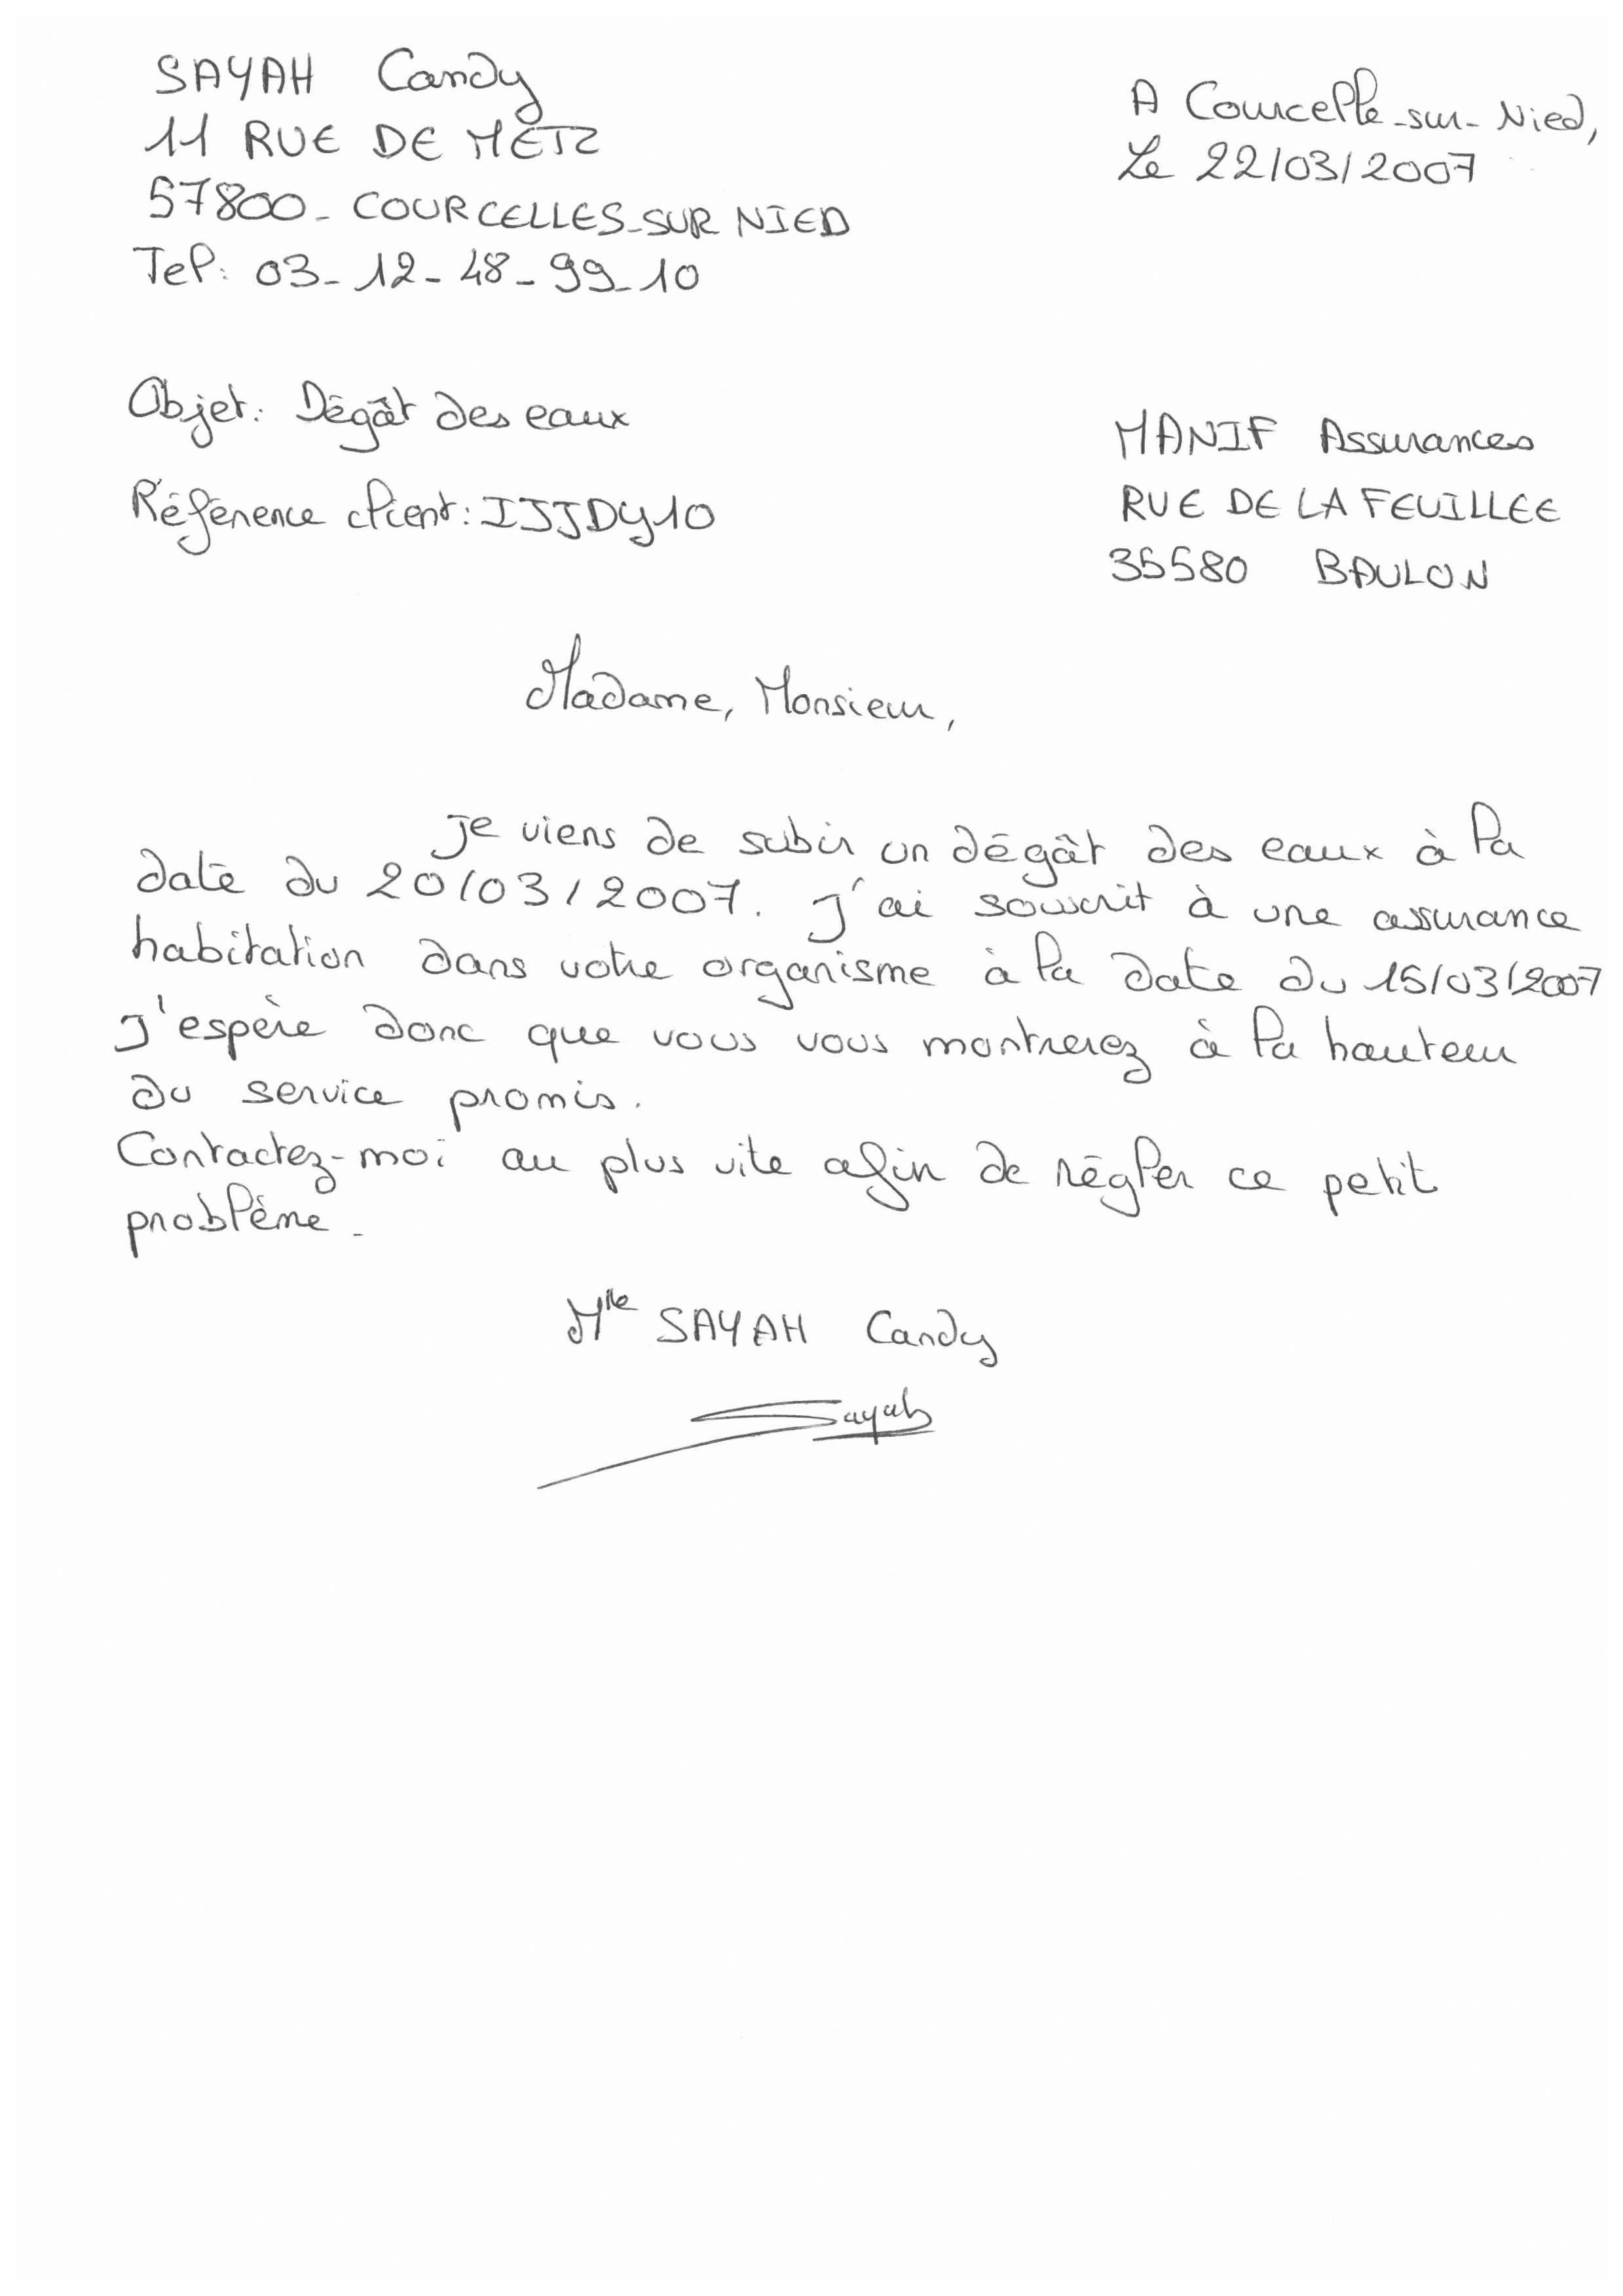 SAYAH Candy
11 RUE DE METZ
57800 - COURCELLES-SUR NIED
Tel: 03-12-48-99-10
A Courcelle-sur-Nied,
Le 22/03/2007
Objet: Dégât des eaux
Référence client: IJJDY10
MANIF Assurances
RUE DE LA FEUILLEE
35580 BAULON
Madame, Monsieur,
je viens de subir un dégât des eaux à la
date du 20/03/2007. J'ai souscrit à une assurance
habitation dans votre organisme à la date du 15/03/2007
J'espère donc que vous vous montrerez à la hauteur
du service promis.
Contactez-moi au plus vite afin de régler ce petit
problème.
Mlle SAYAH Candy
Sayah